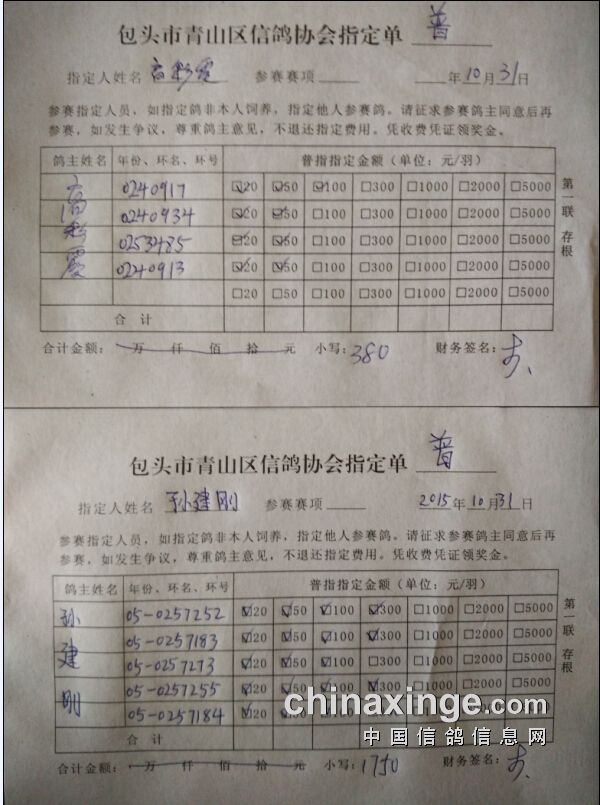 包头市青山区信鸽协会指定单 普
指定人姓名 高彩霞 参赛赛项 年10月31日
参赛指定人员，如指定鸽非本人饲养，指定他人参赛鸽。请征求参赛鸽主同意后再
参赛，如发生争议，尊重鸽主意见，不退还指定费用。凭收费凭证领奖金。
鸽主姓名 年份、环名、环号 普指指定金额（单位：元/羽）
高 0240917 ☑20 ☑50 ☑100 □300 □1000 □2000 □5000
0240934 ☑20 ☑50 □100 □300 □1000 □2000 □5000
彩 0253485 ☑20 ☑50 □100 □300 □1000 □2000 □5000
霞 0240913 ☑20 ☑50 □100 □300 □1000 □2000 □5000
□20 □50 □100 □300 □1000 □2000 □5000
合 计
第一联 存根
合计金额： 万 仟 佰 拾 元 小写：380 财务签名：
包头市青山区信鸽协会指定单 普
指定人姓名 孙建刚 参赛赛项 2015年10月31日
参赛指定人员，如指定鸽非本人饲养，指定他人参赛鸽。请征求参赛鸽主同意后再
参赛，如发生争议，尊重鸽主意见，不退还指定费用。凭收费凭证领奖金。
鸽主姓名 年份、环名、环号 普指指定金额（单位：元/羽）
孙 05-0257252 ☑20 ☑50 ☑100 ☑300 □1000 □2000 □5000
05-0257183 ☑20 ☑50 ☑100 ☑300 □1000 □2000 □5000
建 05-0257273 ☑20 ☑50 ☑100 □300 □1000 □2000 □5000
05-0257255 ☑20 ☑50 ☑100 ☑300 □1000 □2000 □5000
刚 05-0257184 ☑20 ☑50 ☑100
合 计
第一联 存根
chinaxinge.com
中国信鸽信息网
合计金额： 万 仟 佰 拾 元 小写：1750 财务签名：